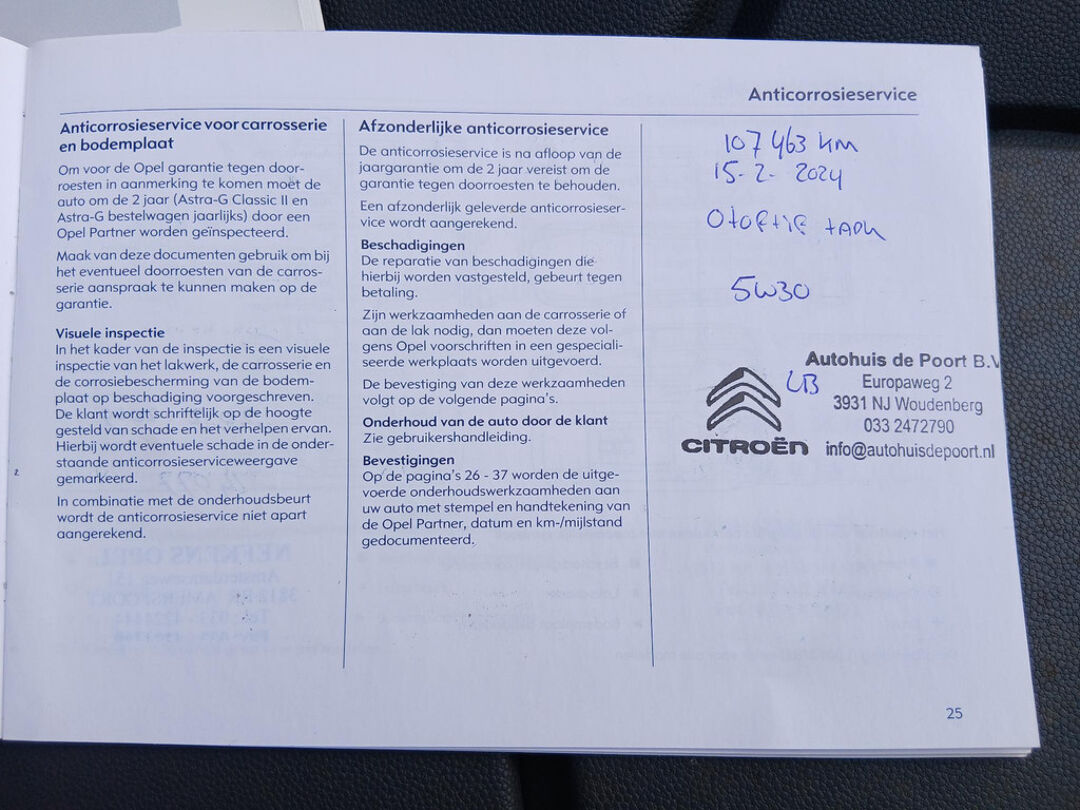 Anticorrosieservice
Anticorrosieservice voor carrosserie
en bodemplaat
Om voor de Opel garantie tegen door-
roesten in aanmerking te komen moet de
auto om de 2 jaar (Astra-G Classic II en
Astra-G bestelwagen jaarlijks) door een
Opel Partner worden geïnspecteerd.
Maak van deze documenten gebruik om bij
het eventueel doorroesten van de carros-
serie aanspraak te kunnen maken op de
garantie.
Visuele inspectie
In het kader van de inspectie is een visuele
inspectie van het lakwerk, de carrosserie en
de corrosiebescherming van de bodem-
plaat op beschadiging voorgeschreven.
De klant wordt schriftelijk op de hoogte
gesteld van schade en het verhelpen ervan.
Hierbij wordt eventuele schade in de onder-
staande anticorrosieserviceweergave
gemarkeerd.
In combinatie met de onderhoudsbeurt
wordt de anticorrosieservice niet apart
aangerekend.
Afzonderlijke anticorrosieservice
De anticorrosieservice is na afloop van de
jaargarantie om de 2 jaar vereist om de
garantie tegen doorroesten te behouden.
Een afzonderlijk geleverde anticorrosieser-
vice wordt aangerekend.
Beschadigingen
De reparatie van beschadigingen die
hierbij worden vastgesteld, gebeurt tegen
betaling.
Zijn werkzaamheden aan de carrosserie of
aan de lak nodig, dan moeten deze vol-
gens Opel voorschriften in een gespeciali-
seerde werkplaats worden uitgevoerd.
De bevestiging van deze werkzaamheden
volgt op de volgende pagina's.
Onderhoud van de auto door de klant
Zie gebruikershandleiding.
Bevestigingen
Op de pagina's 26 - 37 worden de uitge-
voerde onderhoudswerkzaamheden aan
uw auto met stempel en handtekening van
de Opel Partner, datum en km-/mijlstand
gedocumenteerd.
107463 km
15-2-2024
5W30
Autohuis de Poort B.V
Europaweg 2
3931 NJ Woudenberg
033 2472790
info@autohuisdepoort.nl
CITROËN
25